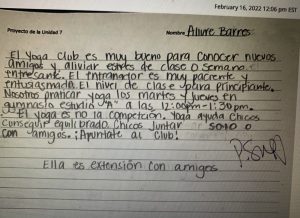 February 16, 2022 12:06 pm EST
Proyecto de la Unidad 7
Nombre Allure Barnes
El Yoga club es muy bueno para conocer nuevos
amigos y aliviar estrés de clase o semana
entresante. El entranator es muy paciente y
entusiasmada. El nivel de clase para principiante.
Nosotros practicar yoga los martes y jueves en
gymnasio estudio "A" a las 12:00pm-1:30pm.
El yoga es no la competción. Yoga ayuda chicos
conseguir equilibrado. Chicos juntar solo o
con amigos. ¡Apuntate al club!
Ella es extensión con amigos